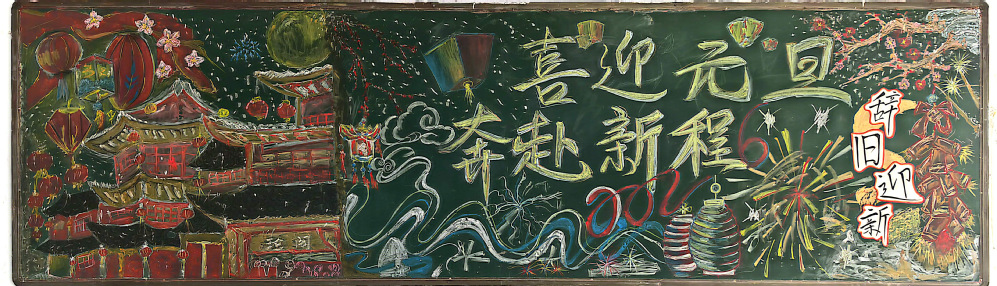 喜迎元旦
奔赴新程
2026
辞旧迎新